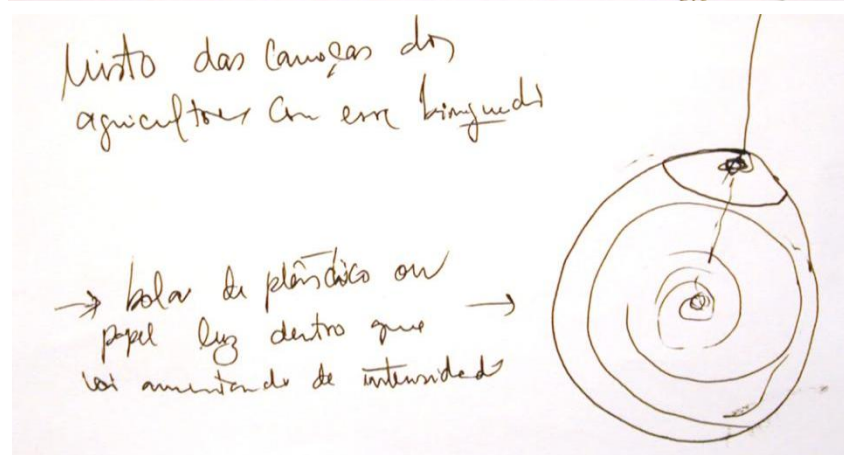 Misto das canções dos
agricultores com esse brinquedo
→ bolas de plástico ou
papel luz dentro que
vai aumentando de intensidade